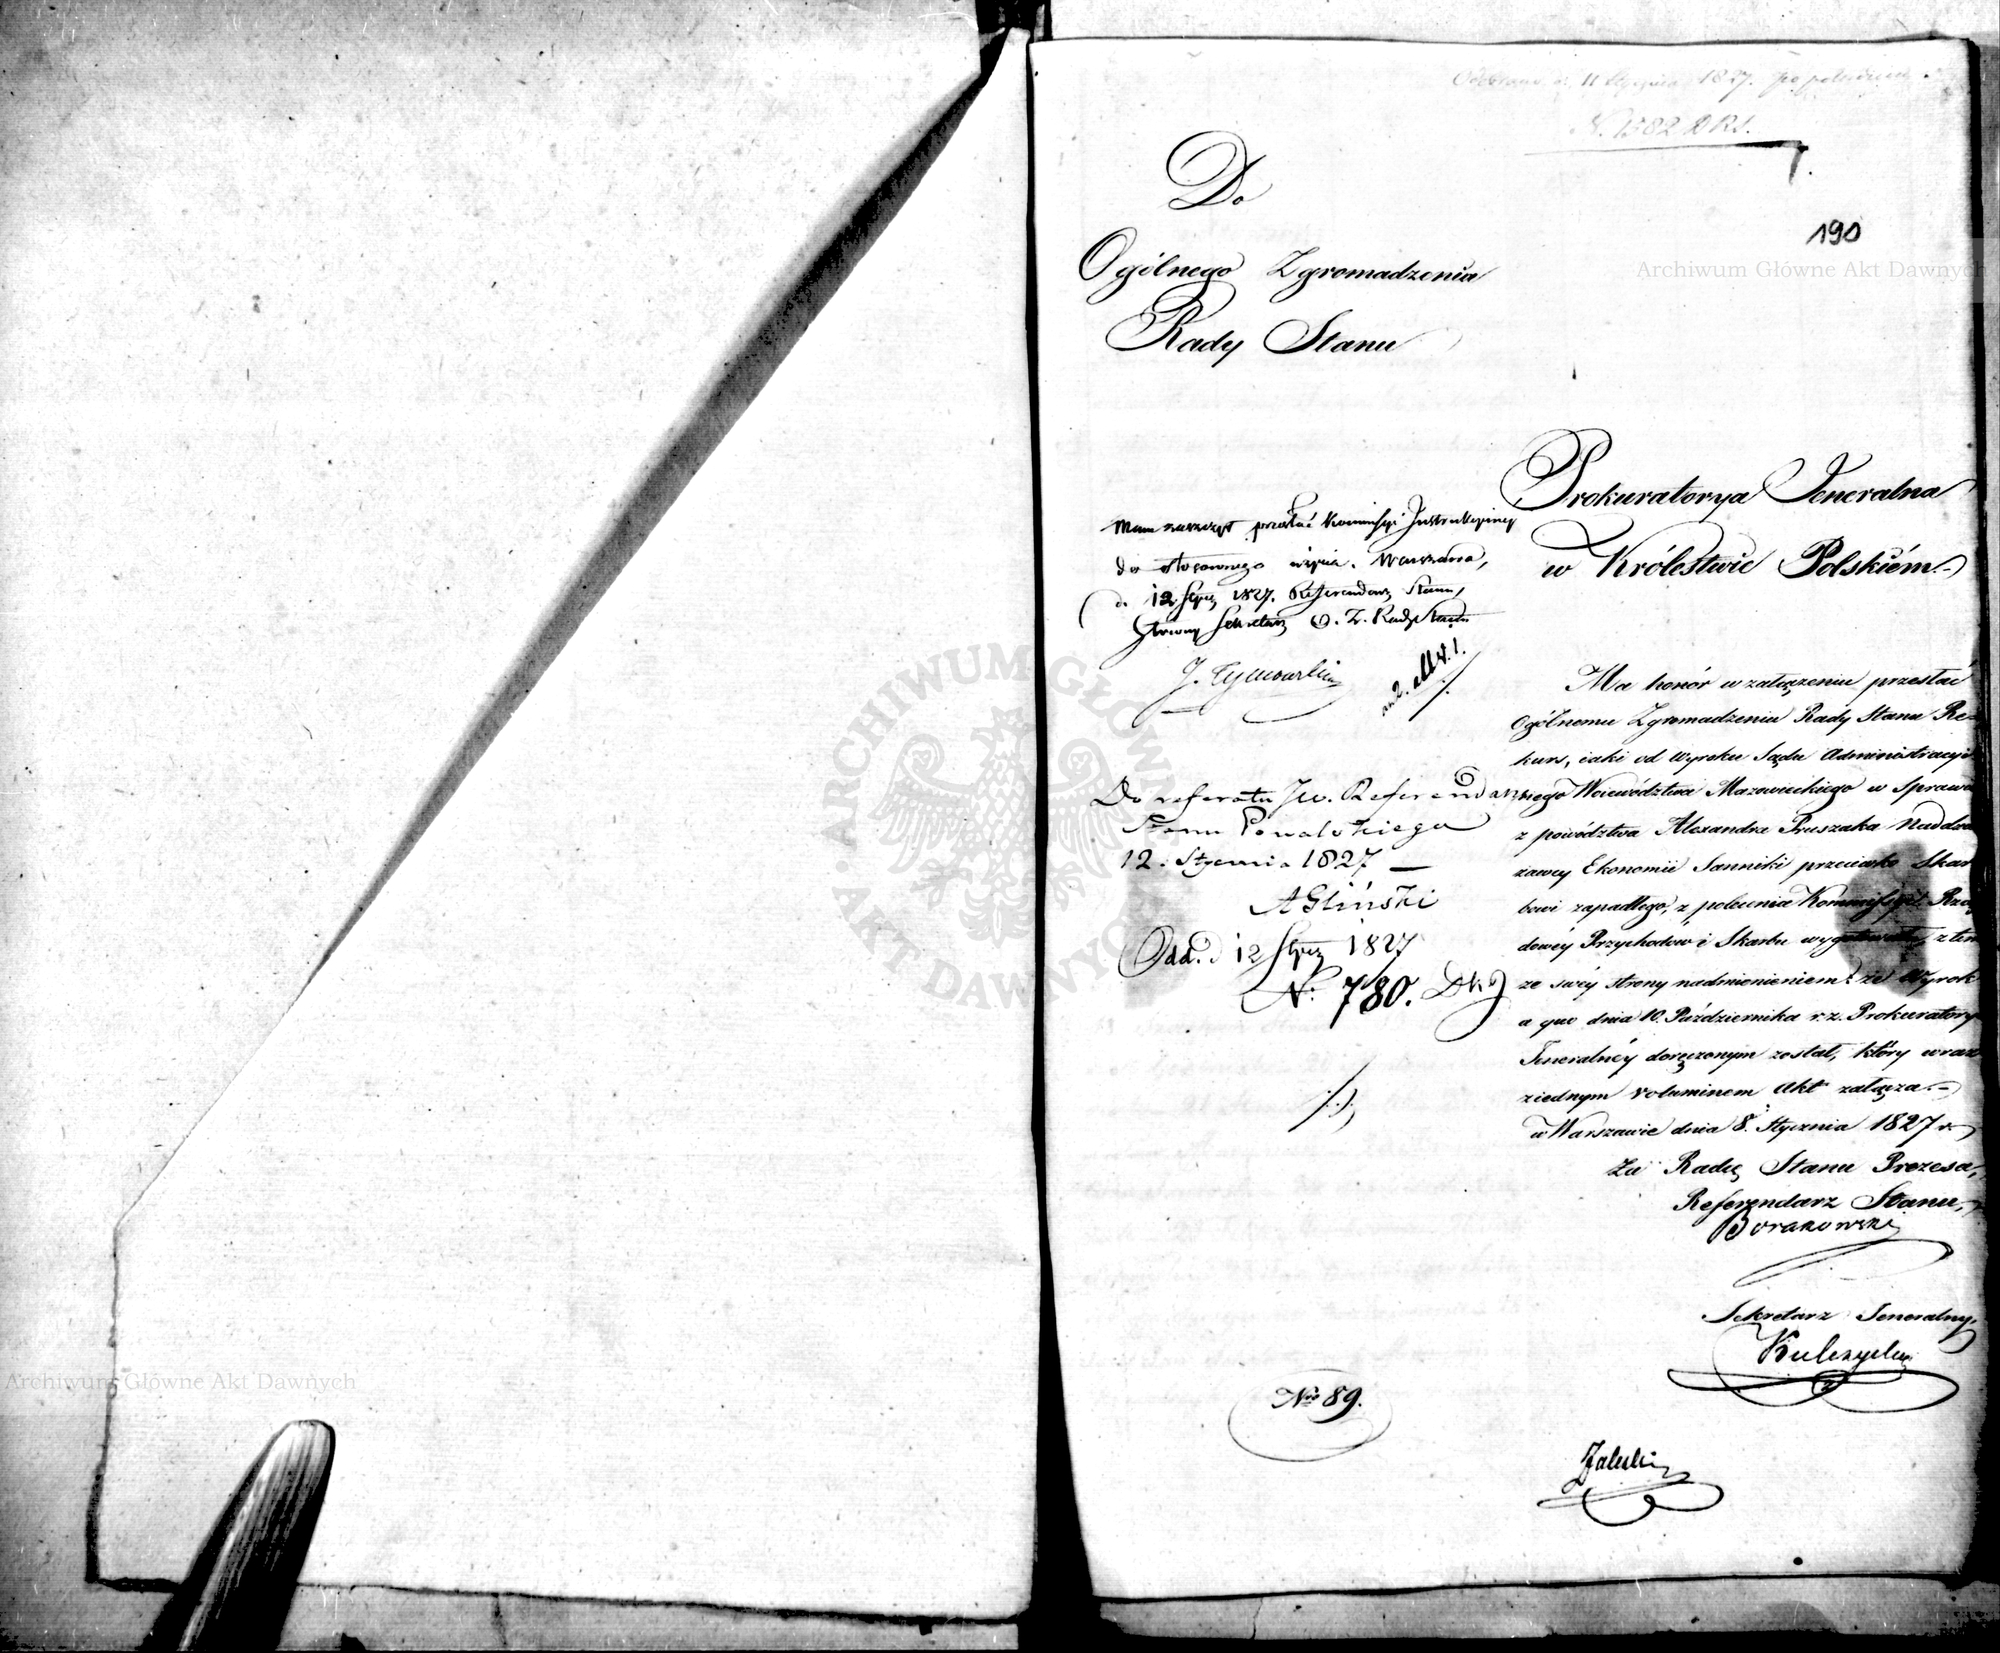 Odebrano d. 11 Stycznia 1827. po południu
N. 1582 D.R.S.
190
Do
Ogólnego Zgromadzenia
Rady Stanu
Prokuratorya Jeneralna
w Królestwie Polskiém
Mam zaszczyt przesłać Kommissyi Instrukcyiney
do stosownego użycia. Warszawa,
d. 12 Stycz 1827. Referendarz Stanu,
Główny Sekretarz O. Z. Rady Stanu
J. Tymowski
Do referatu JW. Referendarza
Stanu
12. Stycznia 1827
A Gliński
Odd. d 12 Stycz 1827
N: 780.
Ma honór w załączeniu przesłać
Ogólnemu Zgromadzeniu Rady Stanu Re-
kurs, iaki od Wyroku Sądu Administracyi-
nego Woiewództwa Mazowieckiego w Sprawie
z powództwa Alexandra Pruszaka Naddzier-
żawcy Ekonomii Sanniki przeciwko Skar-
bowi zapadłego, z polecenia Kommissyi Rzą-
dowéy Przychodów i Skarbu wygotowała, z tem
ze swéy strony nadmienieniem, że Wyrok
a quo dnia 10. Października r. z. Prokuratoryi
Jeneralnéy doręczonym został, który wraz
z iednym voluminem Akt załącza.
w Warszawie dnia 8. Stycznia 1827 r.
Za Radcę Stanu Prezesa,
Referendarz Stanu,
Borakowski
Sekretarz Jeneralny,
Kulczycki
No 89.
Archiwum Główne Akt Dawnych
Archiwum Główne Akt Dawnych
ARCHIWUM GŁÓWNE AKT DAWNYCH